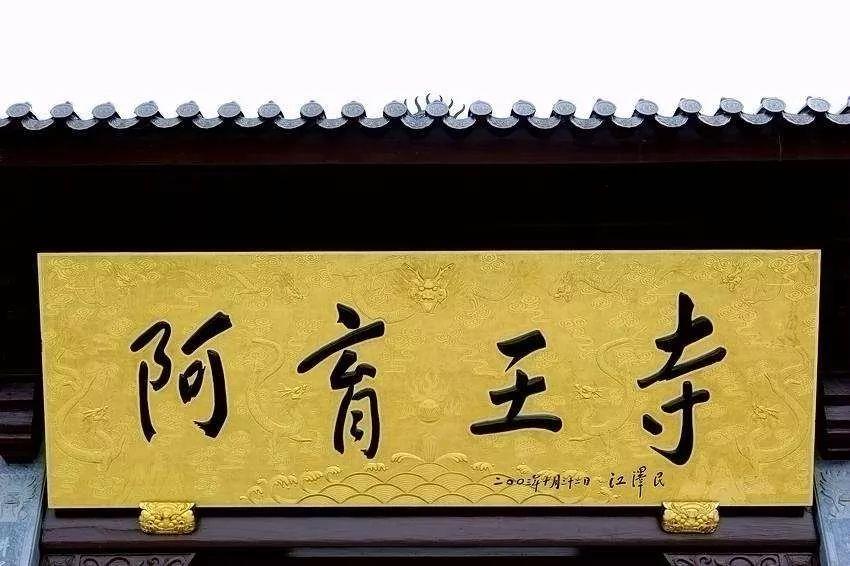 阿育王寺
二〇〇三年十月三十二日 江澤民